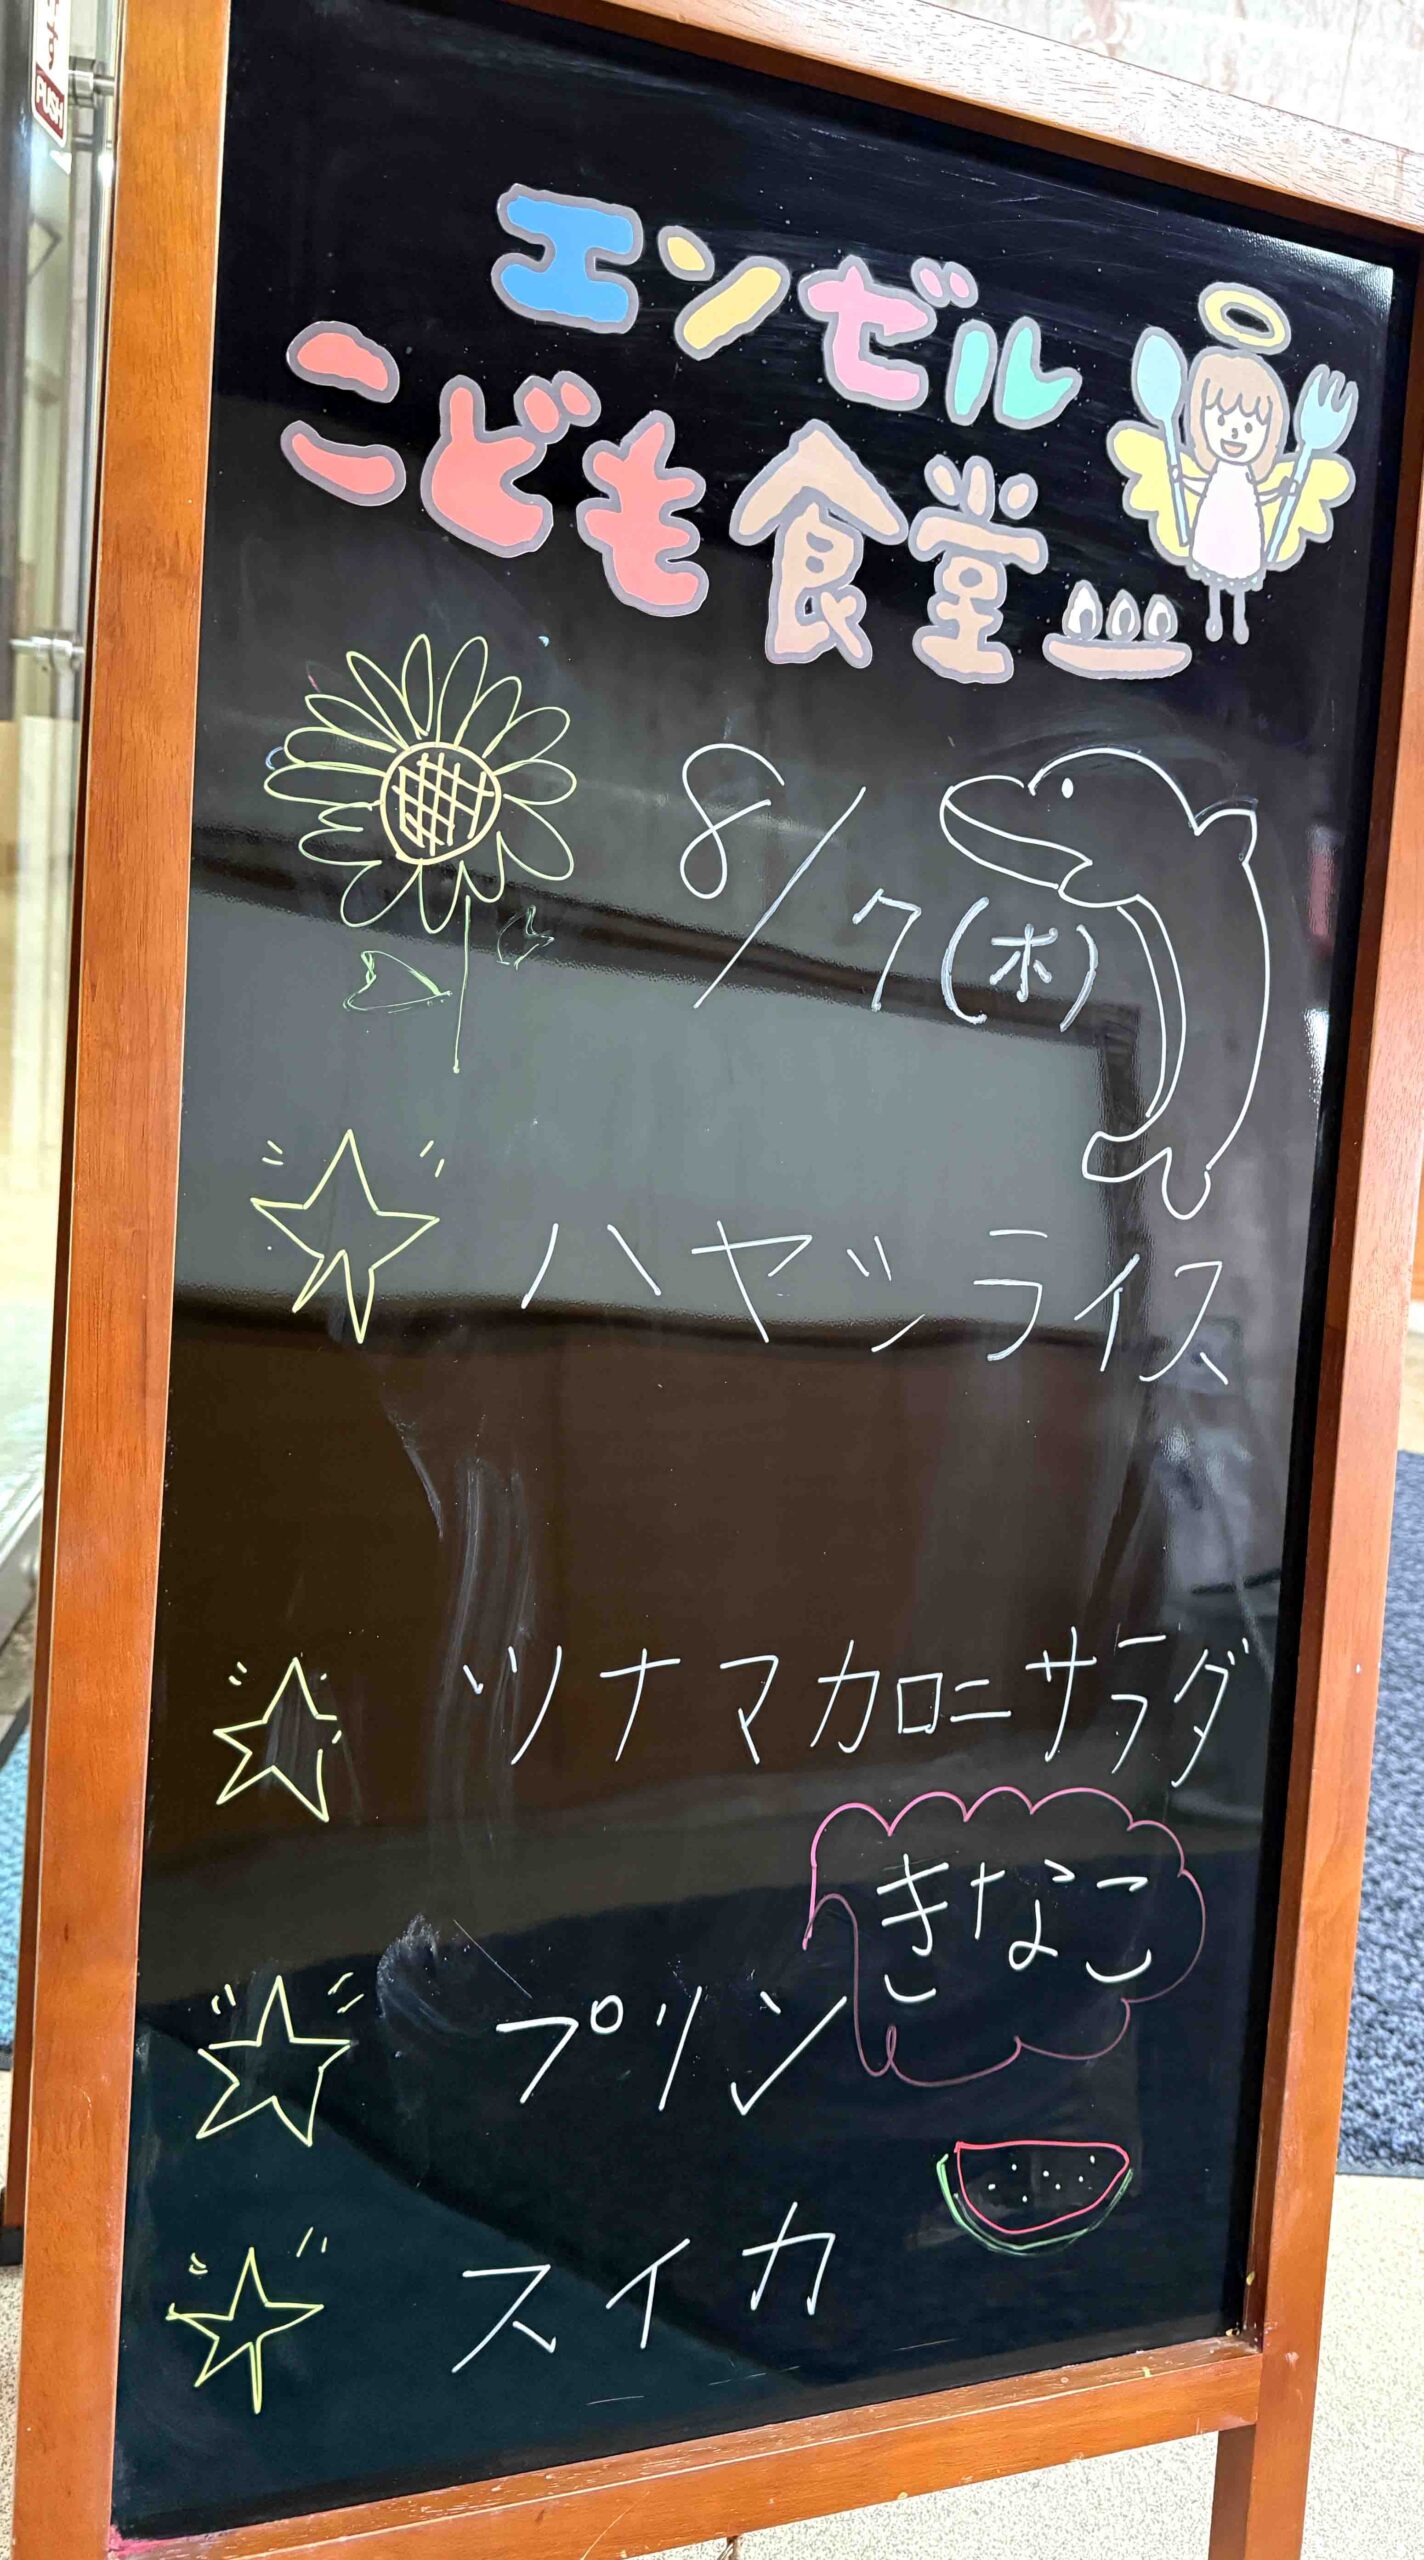 PUSH
エンゼル
こども食堂
8/7(木)
ハヤシライス
ツナマカロニサラダ
きなこ
プリン
スイカ